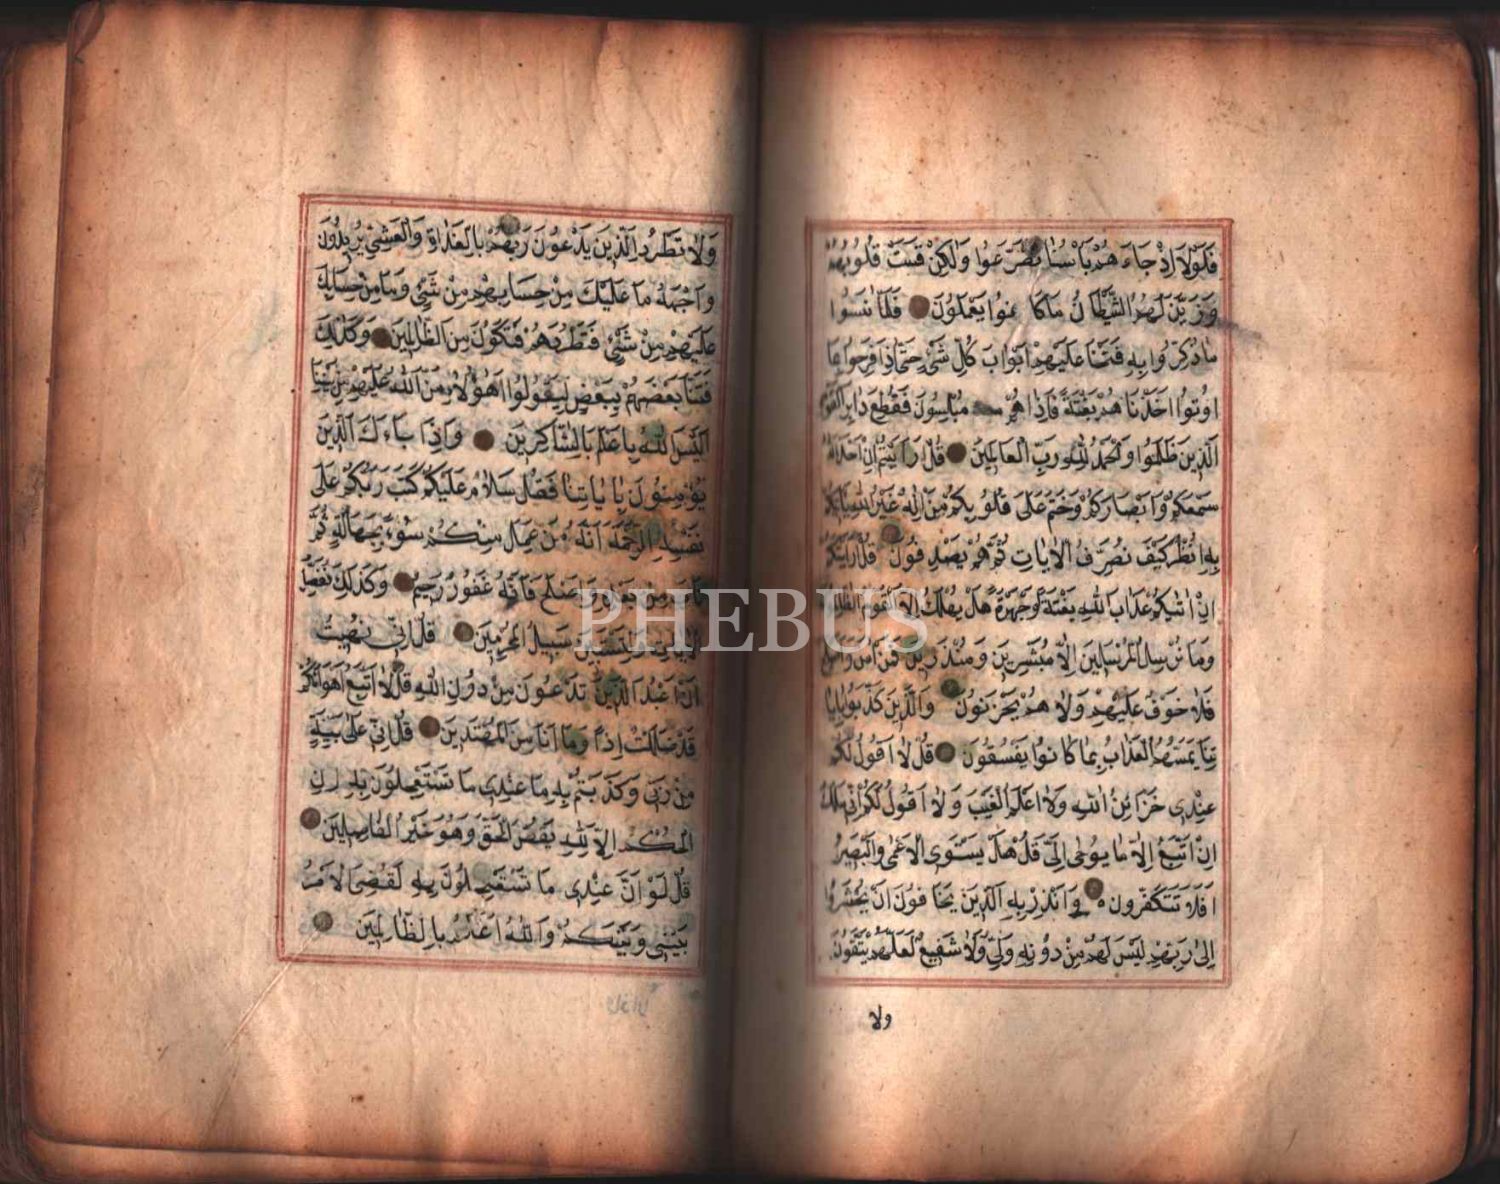 فَلَوْلَا اِذْ جَاءَ هُمْ بَاْسُنَا تَضَرَّعُوا وَلٰكِنْ قَسَتْ قُلُوبُهُمْ
وَزَيَّنَ لَهُمُ الشَّيْطَانُ مَا كَا نُوا يَعْمَلُونَ فَلَمَّا نَسُوا
مَا ذُكِّرُوا بِهِ فَتَحْنَا عَلَيْهِمْ اَبْوَابَ كُلِّ شَيْءٍ حَتَّى اِذَا فَرِحُوا بِمَا
اُوتُوا اَخَذْنَا هُمْ بَغْتَةً فَاِذَا هُمْ مُبْلِسُونَ فَقُطِعَ دَابِرُ الْقَوْمِ
الَّذِينَ ظَلَمُوا وَالْحَمْدُ لِلّٰهِ رَبِّ الْعَالَمِينَ قُلْ اَرَاَيْتُمْ اِنْ اَخَذَ اللّٰهُ
سَمْعَكُمْ وَاَبْصَارَكُمْ وَخَتَمَ عَلَى قُلُوبِكُمْ مَنْ اِلٰهٌ غَيْرُ اللّٰهِ يَاْتِيكُمْ
بِهِ اُنْظُرْ كَيْفَ نُصَرِّفُ الْاٰيَاتِ ثُمَّ هُمْ يَصْدِفُونَ قُلْ اَرَاَيْتَكُمْ
اِنْ اَتٰيكُمْ عَذَابُ اللّٰهِ بَغْتَةً اَوْ جَهْرَةً هَلْ يُهْلَكُ اِلَّا الْقَوْمُ الظَّالِمُونَ
وَمَا نُرْسِلُ الْمُرْسَلِينَ اِلَّا مُبَشِّرِينَ وَمُنْذِرِينَ فَمَنْ اٰمَنَ وَاَصْلَحَ
فَلَا خَوْفٌ عَلَيْهِمْ وَلَا هُمْ يَحْزَنُونَ وَالَّذِينَ كَذَّبُوا بِاٰيَا
تِنَا يَمَسُّهُمُ الْعَذَابُ بِمَا كَانُوا يَفْسُقُونَ قُلْ لَا اَقُولُ لَكُمْ
عِنْدِي خَزَائِنُ اللّٰهِ وَلَا اَعْلَمُ الْغَيْبَ وَلَا اَقُولُ لَكُمْ اِنِّي مَلَكٌ
اِنْ اَتَّبِعُ اِلَّا مَا يُوحٰى اِلَيَّ قُلْ هَلْ يَسْتَوِي الْاَعْمٰى وَالْبَصِيرُ
اَفَلَا تَتَفَكَّرُونَ وَاَنْذِرْ بِهِ الَّذِينَ يَخَا فُونَ اَنْ يُحْشَرُوا
اِلٰى رَبِّهِمْ لَيْسَ لَهُمْ مِنْ دُونِهِ وَلِيٌّ وَلَا شَفِيعٌ لَعَلَّهُمْ يَتَّقُونَ
ولا
وَلَا تَطْرُدِ الَّذِينَ يَدْعُونَ رَبَّهُمْ بِالْغَدَاةِ وَالْعَشِيِّ يُرِيدُونَ
وَجْهَهُ مَا عَلَيْكَ مِنْ حِسَابِهِمْ مِنْ شَيْءٍ وَمَا مِنْ حِسَابِكَ
عَلَيْهِمْ مِنْ شَيْءٍ فَتَطْرُدَهُمْ فَتَكُونَ مِنَ الظَّالِمِينَ وَكَذٰلِكَ
فَتَنَّا بَعْضَهُمْ بِبَعْضٍ لِيَقُولُوا اَهٰؤُلَاءِ مَنَّ اللّٰهُ عَلَيْهِمْ مِنْ بَيْنِنَا
اَلَيْسَ اللّٰهُ بِاَعْلَمَ بِالشَّاكِرِينَ وَاِذَا جَاءَكَ الَّذِينَ
يُؤْمِنُونَ بِاٰيَاتِنَا فَقُلْ سَلَامٌ عَلَيْكُمْ كَتَبَ رَبُّكُمْ عَلٰى
نَفْسِهِ الرَّحْمَةَ اَنَّهُ مَنْ عَمِلَ مِنْكُمْ سُوءًا بِجَهَالَةٍ ثُمَّ
تَابَ مِنْ بَعْدِهِ وَاَصْلَحَ فَاَنَّهُ غَفُورٌ رَحِيمٌ وَكَذٰلِكَ نُفَصِّلُ
الْاٰيَاتِ وَلِتَسْتَبِينَ سَبِيلُ الْمُجْرِمِينَ قُلْ اِنِّي نُهِيتُ
اَنْ اَعْبُدَ الَّذِينَ تَدْعُونَ مِنْ دُونِ اللّٰهِ قُلْ لَا اَتَّبِعُ اَهْوَاءَكُمْ
قَدْ ضَلَلْتُ اِذًا وَمَا اَنَا مِنَ الْمُهْتَدِينَ قُلْ اِنِّي عَلٰى بَيِّنَةٍ
مِنْ رَبِّي وَكَذَّبْتُمْ بِهِ مَا عِنْدِي مَا تَسْتَعْجِلُونَ بِهِ اِنِ
الْحُكْمُ اِلَّا لِلّٰهِ يَقُصُّ الْحَقَّ وَهُوَ خَيْرُ الْفَاصِلِينَ
قُلْ لَوْ اَنَّ عِنْدِي مَا تَسْتَعْجِلُونَ بِهِ لَقُضِيَ الْاَمْرُ
بَيْنِي وَبَيْنَكُمْ وَاللّٰهُ اَعْلَمُ بِالظَّالِمِينَ
PHEBUS